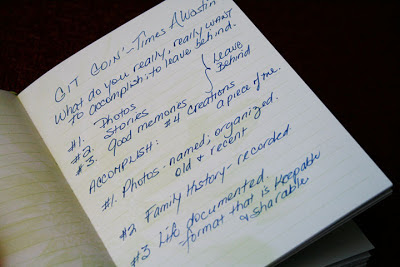 GIT GOIN' - Times A Wastin
What do you really, really WANT
to accomplish; to leave behind.
#1. Photos
#2. Stories } Leave Behind
#3. Good memories
#4 Creations
a piece of me.
ACCOMPLISH:
#1. Photos - named; organized.
old & recent
#2 Family History - recorded.
#3 Life documented.
format that is keepable
& sharable